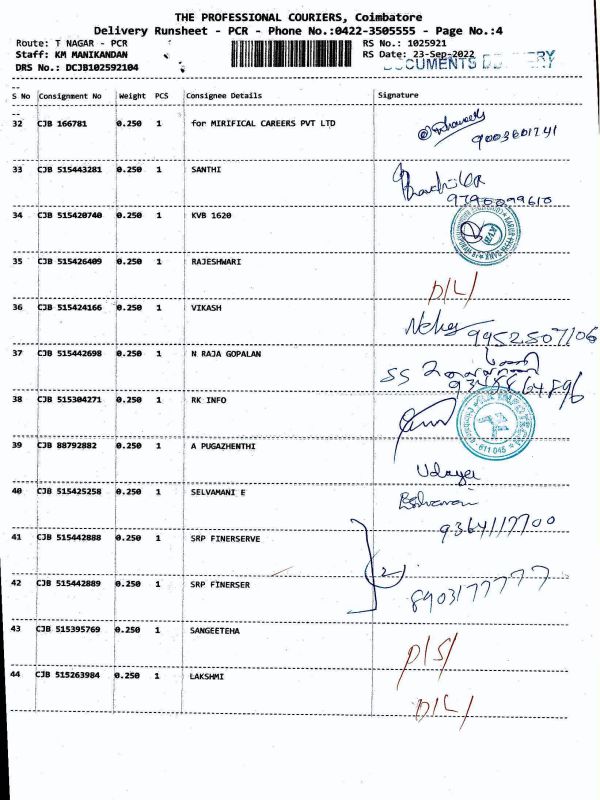 THE PROFESSIONAL COURIERS, Coimbatore
Delivery Runsheet - PCR - Phone No.:0422-3505555 - Page No.:4
Route: T NAGAR - PCR RS No.: 1025921
Staff: KM MANIKANDAN RS Date: 23-Sep-2022
DRS No.: DCJB102592104 DOCUMENTS DELIVERY
S No Consignment No Weight PCS Consignee Details Signature
32 CJB 166781 0.250 1 for MIRIFICAL CAREERS PVT LTD
9003601741
33 CJB 515443281 0.250 1 SANTHI
9790099610
34 CJB 515420740 0.250 1 KVB 1620
KVB
35 CJB 515426409 0.250 1 RAJESHWARI
D/L/
36 CJB 515424166 0.250 1 VIKASH
9952507106
37 CJB 515442698 0.250 1 N RAJA GOPALAN
SS
38 CJB 515304271 0.250 1 RK INFO
611 045
39 CJB 88792882 0.250 1 A PUGAZHENTHI
Udaya
40 CJB 515425258 0.250 1 SELVAMANI E
9364117700
41 CJB 515442888 0.250 1 SRP FINERSERVE
2
42 CJB 515442889 0.250 1 SRP FINERSER
8903177777
43 CJB 515395769 0.250 1 SANGEETEHA
D/S/
44 CJB 515263984 0.250 1 LAKSHMI
D/L/